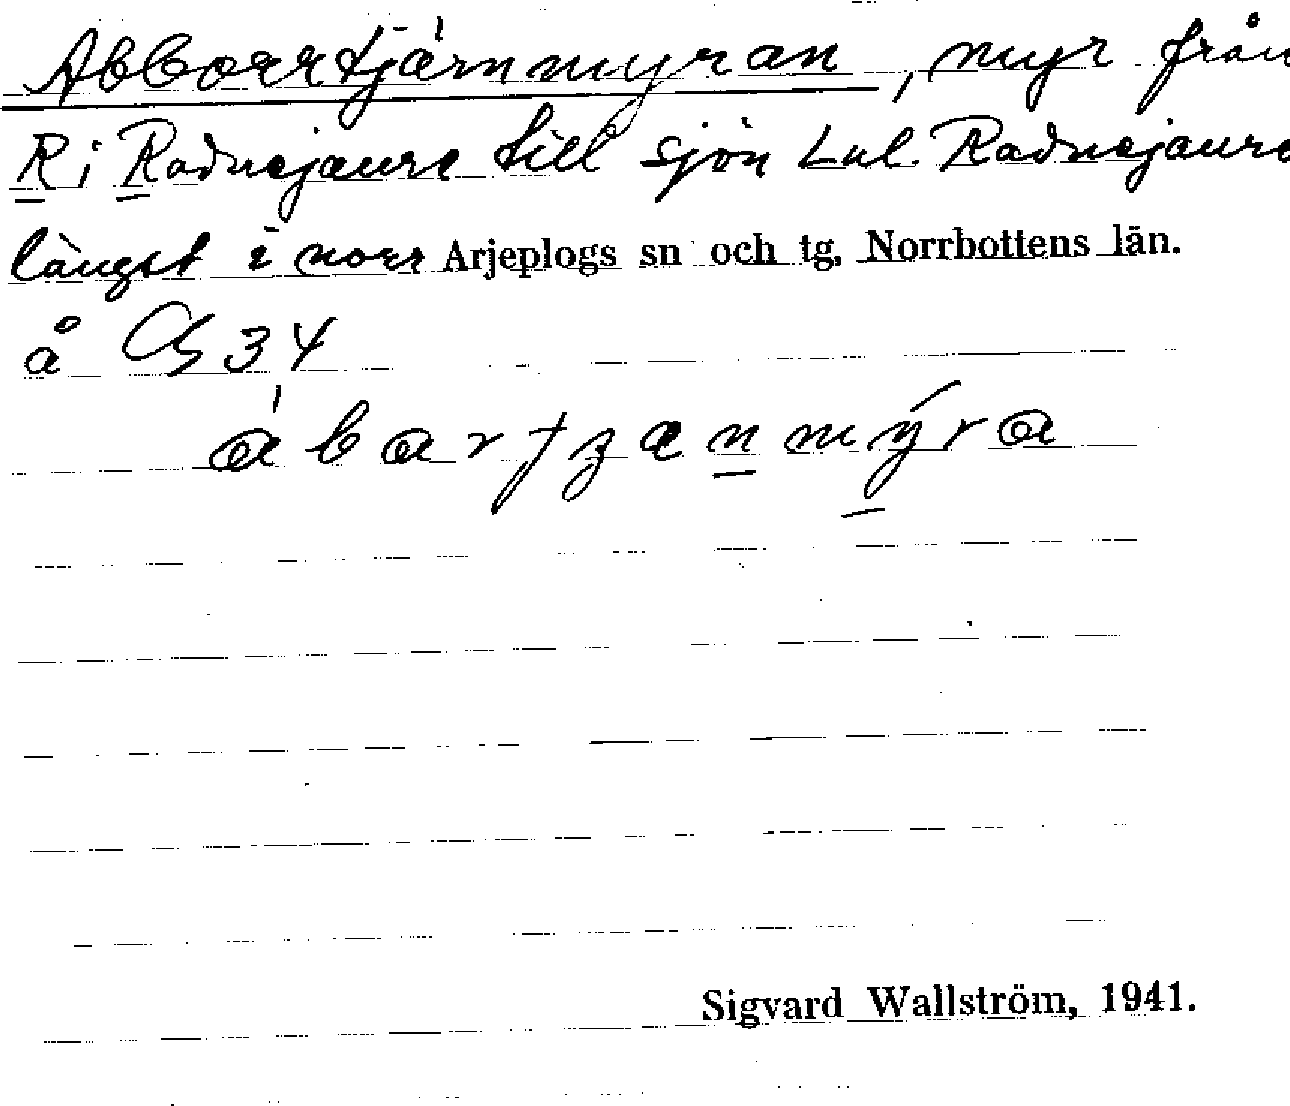 Abborrtjärnmyran, myr från
R i Radnejaure till sjön Lul. Radnejaure
längst i norr Arjeplogs sn och tg, Norrbottens län.
å CS 34
Sigvard Wallström, 1941.